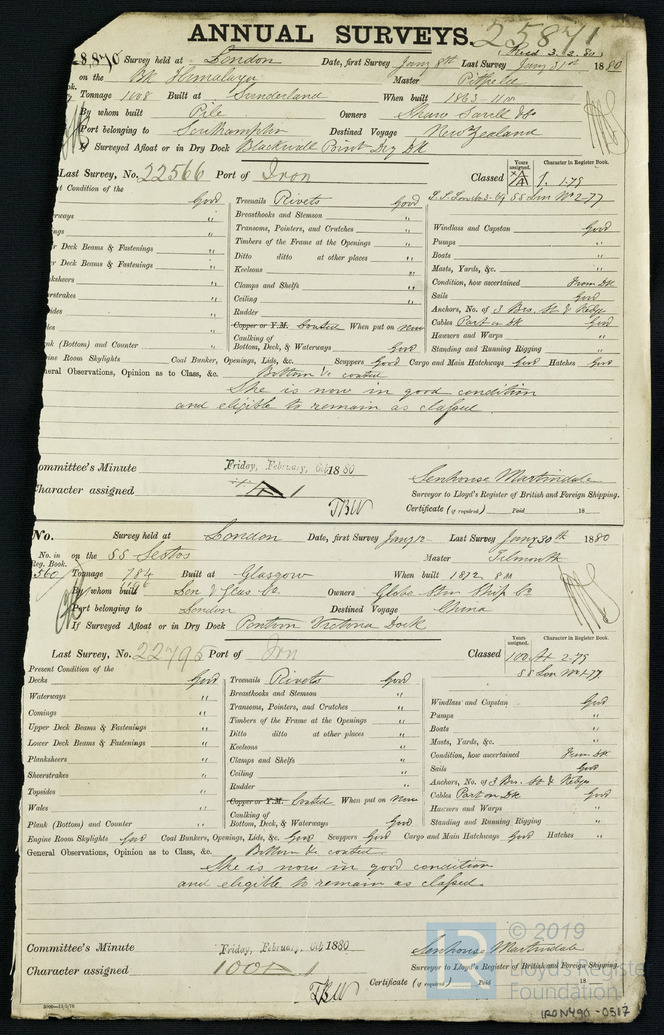 ANNUAL SURVEYS. 25871
Recd 3.2.80
Survey held at London Date, first Survey Jany 8th Last Survey Jany 31st 1880
on the Bk Himalaya Master
Tonnage 1008 Built at Sunderland When built 1863-11m
By whom built Pile Owners Shaw Savill & Co
Port belonging to Southampton Destined Voyage New Zealand
If Surveyed Afloat or in Dry Dock Blackwall Point Dry Dk
Last Survey, No. 22566 Port of Iron Classed Years assigned. Character in Register Book. 1.79
t Condition of the Good Treenails Rivets Good
Breasthooks and Stemson " Windlass and Capstan Good
Transoms, Pointers, and Crutches " Pumps "
r Deck Beams & Fastenings " Timbers of the Frame at the Openings " Boats "
r Deck Beams & Fastenings " Ditto ditto at other places " Masts, Yards, &c. "
Keelsons " Condition, how ascertained From Dk
Clamps and Shelfs " Sails Good
Ceiling " Anchors, No. of 3 Brs. St & Kedge
Rudder " Cables Part on Dk Good
Copper or Y.M. Coated When put on New Hawsers and Warps "
nk (Bottom) and Counter " Caulking of Bottom, Deck, & Waterways Good Standing and Running Rigging "
ine Room Skylights Coal Bunker, Openings, Lids, &c. Scuppers Good Cargo and Main Hatchways Good Hatches Good
neral Observations, Opinion as to Class, &c. Bottom &c coated
She is now in good condition
and eligible to remain as classed.
ommittee's Minute Friday, February, 6th 1880
Senhouse Martindale
Character assigned A 1 Surveyor to Lloyd's Register of British and Foreign Shipping.
TBW Certificate (if required) Paid 18
No. Survey held at London Date, first Survey Jany 12 Last Survey Jany 30th 1880
No. in Reg. Book. on the SS Sestos Master Tilmouth
560 Tonnage 784 Built at Glasgow When built 1872 8m
By whom built Lon & Glas Co. Owners Globe Stm Ship Co
Port belonging to London Destined Voyage China
If Surveyed Afloat or in Dry Dock Pontoon Victoria Dock
Last Survey, No. 22795 Port of Irn Classed Years assigned. 100 A1 Character in Register Book. 2-79
SS Lon No 1-77
Present Condition of the
Decks Good Treenails Rivets Good
Waterways " Breasthooks and Stemson " Windlass and Capstan Good
Comings " Transoms, Pointers, and Crutches " Pumps "
Upper Deck Beams & Fastenings " Timbers of the Frame at the Openings " Boats "
Lower Deck Beams & Fastenings " Ditto ditto at other places " Masts, Yards, &c. "
Planksheers " Keelsons " Condition, how ascertained From Dk
Sheerstrakes " Clamps and Shelfs " Sails Good
Topsides " Ceiling " Anchors, No. of 3 Brs. St & Kedge
Wales " Rudder " Cables Part on Dk Good
Copper or Y.M. Coated When put on New Hawsers and Warps "
Plank (Bottom) and Counter " Caulking of Bottom, Deck, & Waterways Good Standing and Running Rigging "
Engine Room Skylights Good Coal Bunkers, Openings, Lids, &c. Good Scuppers Good Cargo and Main Hatchways Good Hatches "
General Observations, Opinion as to Class, &c. Bottom &c coated
She is now in good condition
and eligible to remain as classed.
Committee's Minute Friday, February, 6th 1880
Senhouse Martindale
Character assigned 100 A 1 Surveyor to Lloyd's Register of British and Foreign Shipping.
TBW Certificate (if required) Paid 18
LR © 2019
Lloyd's Register
Foundation
IRON490-0317